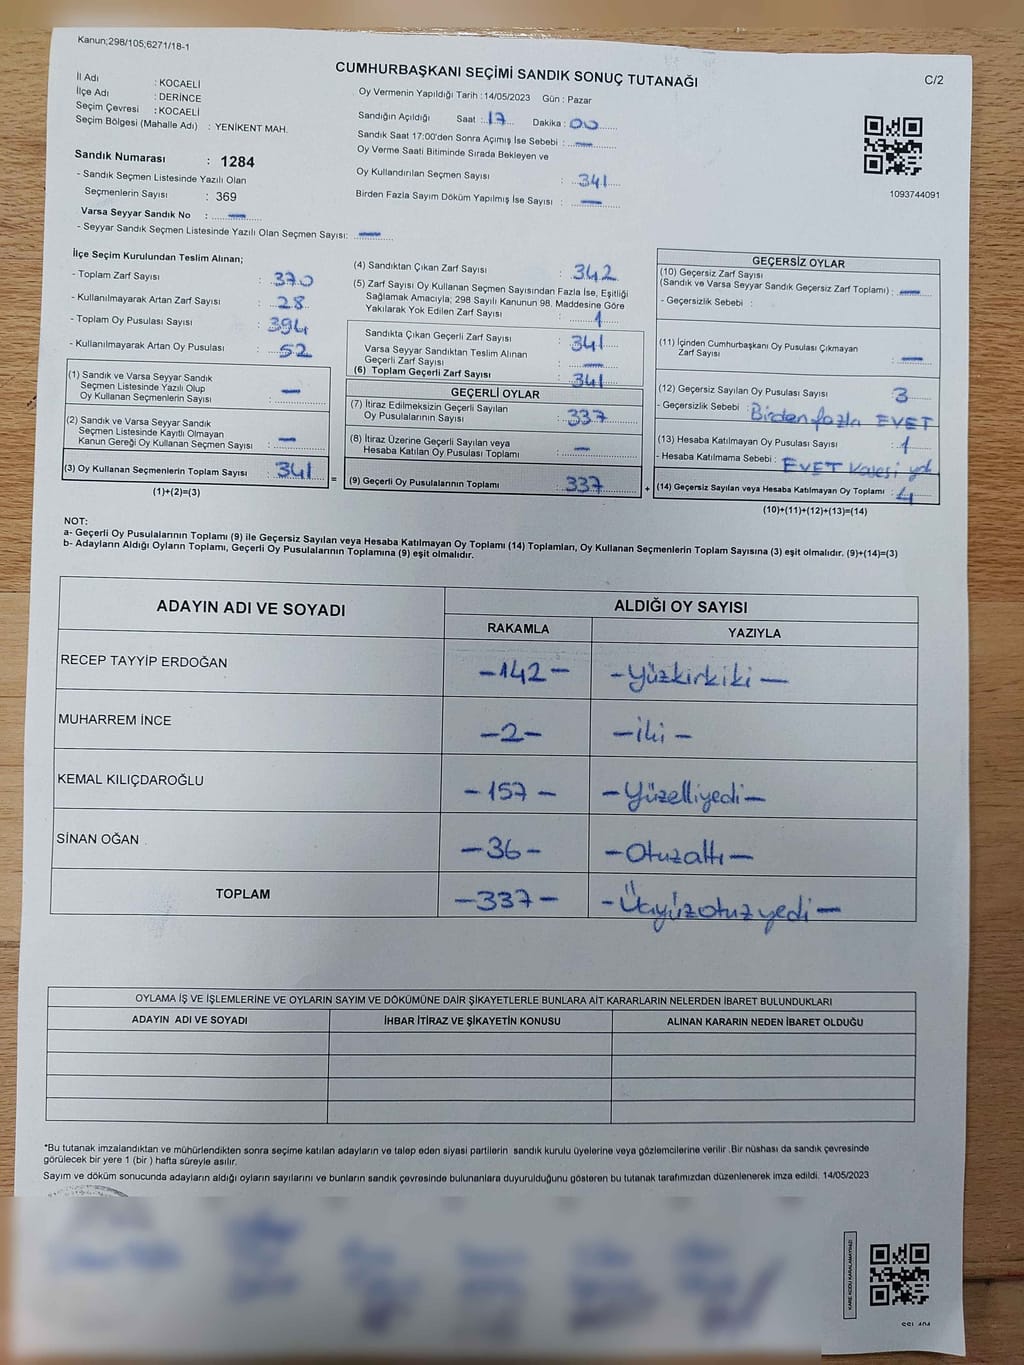 Kanun;298/105;6271/18-1
CUMHURBAŞKANI SEÇİMİ SANDIK SONUÇ TUTANAĞI
C/2
İl Adı : KOCAELİ
İlçe Adı : DERİNCE
Seçim Çevresi : KOCAELİ
Seçim Bölgesi (Mahalle Adı) : YENİKENT MAH.
Sandık Numarası : 1284
- Sandık Seçmen Listesinde Yazılı Olan
Seçmenlerin Sayısı : 369
Varsa Seyyar Sandık No : —
- Seyyar Sandık Seçmen Listesinde Yazılı Olan Seçmen Sayısı: —
Oy Vermenin Yapıldığı Tarih :14/05/2023 Gün : Pazar
Sandığın Açıldığı Saat : 17 Dakika : 00
Sandık Saat 17:00'den Sonra Açımış İse Sebebi : —
Oy Verme Saati Bitiminde Sırada Bekleyen ve
Oy Kullandırılan Seçmen Sayısı : 341
Birden Fazla Sayım Döküm Yapılmış İse Sayısı : —
1093744091
İlçe Seçim Kurulundan Teslim Alınan;
- Toplam Zarf Sayısı : 370
- Kullanılmayarak Artan Zarf Sayısı : 28
- Toplam Oy Pusulası Sayısı : 394
- Kullanılmayarak Artan Oy Pusulası : 52
(1) Sandık ve Varsa Seyyar Sandık
Seçmen Listesinde Yazılı Olup
Oy Kullanan Seçmenlerin Sayısı : —
(2) Sandık ve Varsa Seyyar Sandık
Seçmen Listesinde Kayıtlı Olmayan
Kanun Gereği Oy Kullanan Seçmen Sayısı : —
(3) Oy Kullanan Seçmenlerin Toplam Sayısı : 341
(1)+(2)=(3)
=
(4) Sandıktan Çıkan Zarf Sayısı : 342
(5) Zarf Sayısı Oy Kullanan Seçmen Sayısından Fazla İse, Eşitliği
Sağlamak Amacıyla; 298 Sayılı Kanunun 98. Maddesine Göre
Yakılarak Yok Edilen Zarf Sayısı : 1
Sandıkta Çıkan Geçerli Zarf Sayısı : 341
Varsa Seyyar Sandıktan Teslim Alınan
Geçerli Zarf Sayısı : —
(6) Toplam Geçerli Zarf Sayısı : 341
GEÇERLİ OYLAR
(7) İtiraz Edilmeksizin Geçerli Sayılan
Oy Pusulalarının Sayısı : 337
(8) İtiraz Üzerine Geçerli Sayılan veya
Hesaba Katılan Oy Pusulası Toplamı : —
(9) Geçerli Oy Pusulalarının Toplamı : 337
+
GEÇERSİZ OYLAR
(10) Geçersiz Zarf Sayısı
(Sandık ve Varsa Seyyar Sandık Geçersiz Zarf Toplamı) : —
- Geçersizlik Sebebi :
(11) İçinden Cumhurbaşkanı Oy Pusulası Çıkmayan
Zarf Sayısı : —
(12) Geçersiz Sayılan Oy Pusulası Sayısı : 3
- Geçersizlik Sebebi : Birden fazla EVET
(13) Hesaba Katılmayan Oy Pusulası Sayısı : 1
- Hesaba Katılmama Sebebi : EVET Kasesi yok
(14) Geçersiz Sayılan veya Hesaba Katılmayan Oy Toplamı : 4
(10)+(11)+(12)+(13)=(14)
NOT:
a- Geçerli Oy Pusulalarının Toplamı (9) ile Geçersiz Sayılan veya Hesaba Katılmayan Oy Toplamı (14) Toplamları, Oy Kullanan Seçmenlerin Toplam Sayısına (3) eşit olmalıdır. (9)+(14)=(3)
b- Adayların Aldığı Oyların Toplamı, Geçerli Oy Pusulalarının Toplamına (9) eşit olmalıdır.
ADAYIN ADI VE SOYADI ALDIĞI OY SAYISI
RAKAMLA YAZIYLA
RECEP TAYYİP ERDOĞAN –142– –Yüzkırkiki–
MUHARREM İNCE –2– –iki–
KEMAL KILIÇDAROĞLU –157– –Yüzelliyedi–
SİNAN OĞAN –36– –Otuzaltı–
TOPLAM –337– –Üçyüzotuzyedi–
OYLAMA İŞ VE İŞLEMLERİNE VE OYLARIN SAYIM VE DÖKÜMÜNE DAİR ŞİKAYETLERLE BUNLARA AİT KARARLARIN NELERDEN İBARET BULUNDUKLARI
ADAYIN ADI VE SOYADI İHBAR İTİRAZ VE ŞİKAYETİN KONUSU ALINAN KARARIN NEDEN İBARET OLDUĞU
*Bu tutanak imzalandıktan ve mühürlendikten sonra seçime katılan adayların ve talep eden siyasi partilerin sandık kurulu üyelerine veya gözlemcilerine verilir .Bir nüshası da sandık çevresinde
görülecek bir yere 1 (bir ) hafta süreyle asılır.
Sayım ve döküm sonucunda adayların aldığı oyların sayılarını ve bunların sandık çevresinde bulunanlara duyurulduğunu gösteren bu tutanak tarafımızdan düzenlenerek imza edildi. 14/05/2023
KARE KODU KARALAMAYINIZ!